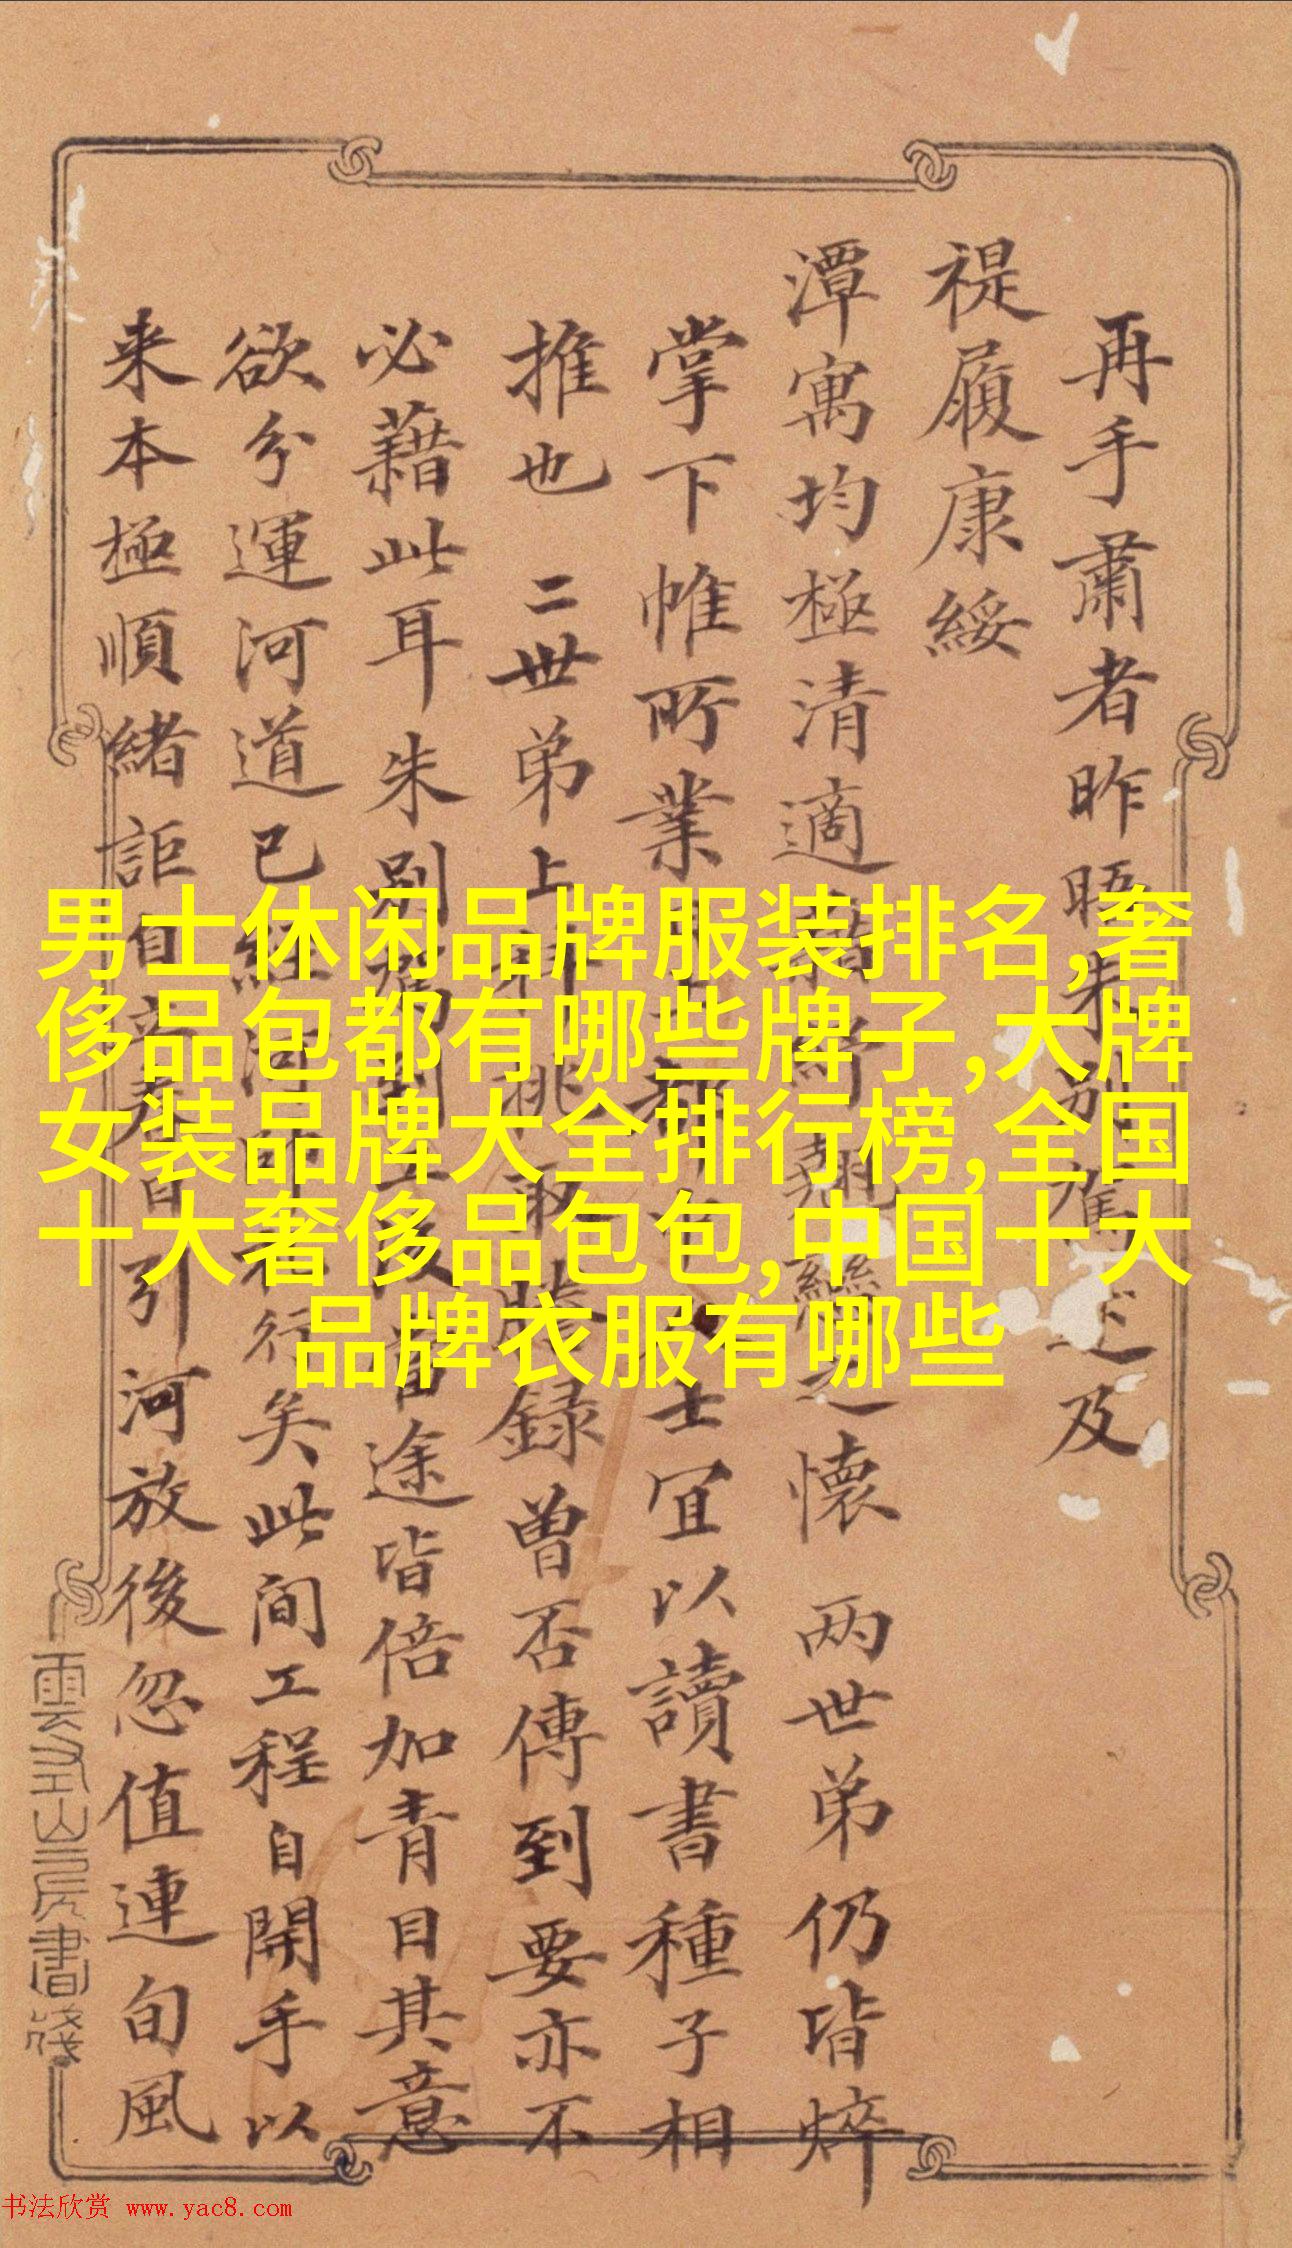 再手肅者昨晤朱別進述及
禔履康綏
潭寓均極清適翹戀之懷 两世弟仍皆焠
掌下帷所業士宜以讀書種子相
推也 二世弟上録曾否傳到要亦不
必藉此耳朱別途皆倍加青目其意
欲分運河道已經行矣此间工程自開手以
来本極順緒詎自引河放後忽值連旬風
雲山房書箋
男士休闲品牌服装排名,奢
侈品包都有哪些牌子,大牌
女装品牌大全排行榜,全国
十大奢侈品包包,中国十大
品牌衣服有哪些
书法欣赏 www.yac8.com